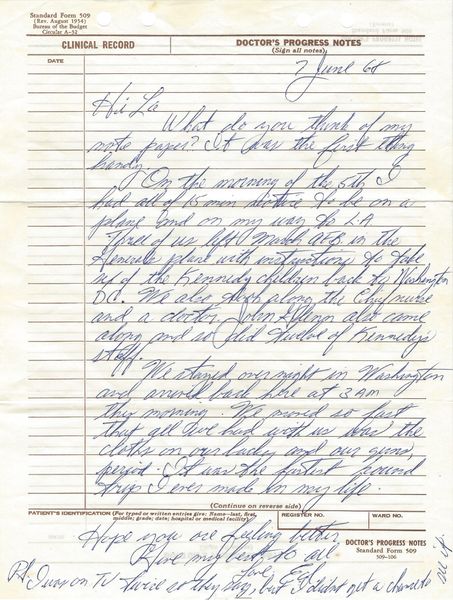 Standard Form 509
(Rev. August 1954)
Bureau of the Budget
Circular A-32
CLINICAL RECORD
DOCTOR'S PROGRESS NOTES
(Sign all notes)
DATE
7 June 68
Hi La
What do you think of my
note paper? It was the first thing
handy.
On the morning of the 5th I
had all of 15 min notice to be on a
plane and on my way to LA.
Three of us left March AFB in the
Generals plane with instructions to take
six of the Kennedy children back to Washington
DC. We also took along the Chief nurse
and a doctor. John Glenn also came
along and so did twelve of Kennedy's
staff.
We stayed over night in Washington
and arrived back here at 3 AM
this morning. We moved so fast
that all I've had with us was the
cloths on our backs and our guns,
period. It was the fastest round
trip I ever made in my life.
(Continue on reverse side)
PATIENT'S IDENTIFICATION (For typed or written entries give: Name—last, first, middle; grade; date; hospital or medical facility)
REGISTER NO.
WARD NO.
Hope you are feeling better.
Give my best to all
Love
DOCTOR'S PROGRESS NOTES
Standard Form 509
509-106
PS I was on TV twice so they say, but I didn't get a chance